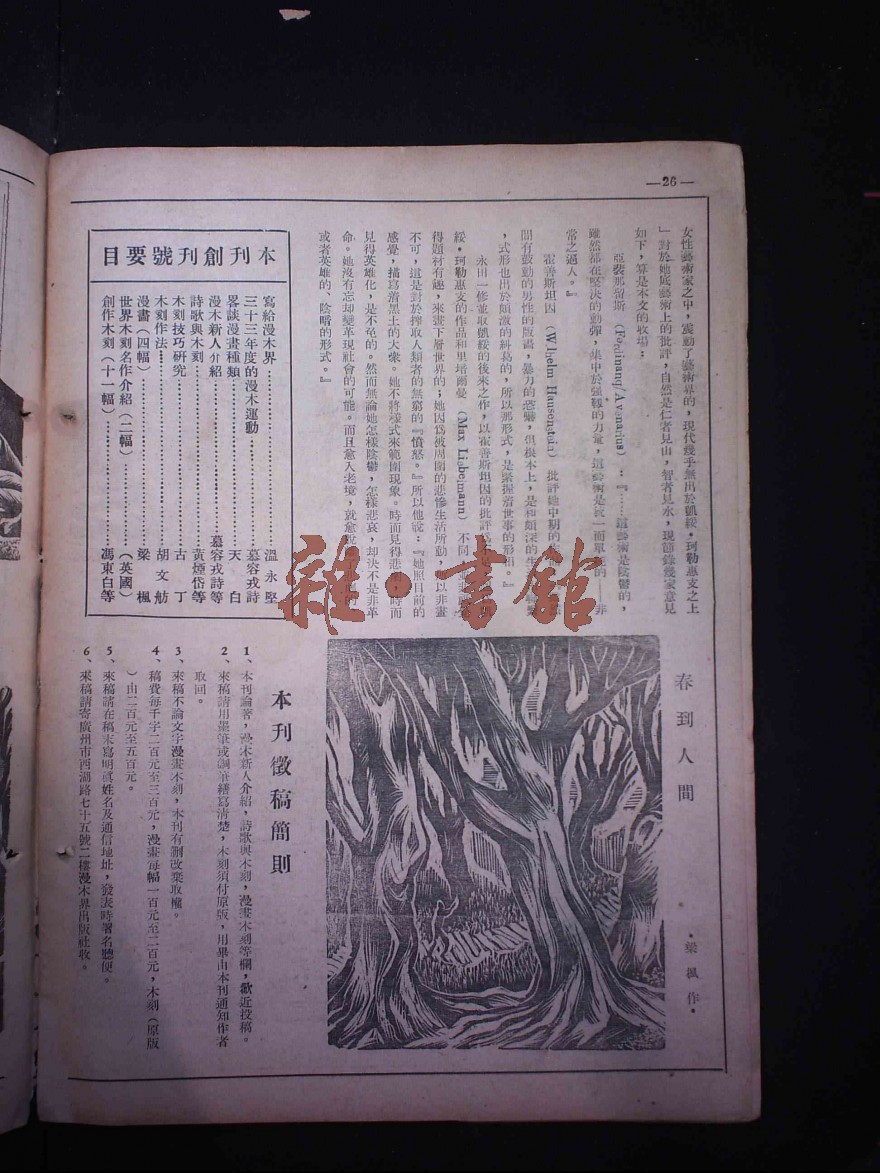 —26—
女性藝術家之中，震動了藝術界的，現代幾乎無出於凱綏·珂勒惠支之上
」對於她底藝術上的批評，自然是仁者見山，智者見水，現節錄幾家意見
如下，算是本文的收場：
亞裴那留斯（Ferdinanq/Avanarius）：『……這藝術是陰鬱的，
雖然都在堅決的動彈，集中於強靱的力量，這藝術是統一而單純的——非
常之逼人。』
霍善斯坦因（Wlhelm Hausenstein）批評她中期的
間有鼓動的男性的版畫，暴力的恐嚇，但根本上，是和頗深的生
，式形也出於頗激的糾葛的，所以那形式，是緊握着世事的形相。』
永田一修並取凱綏的後來之作，以霍善斯坦因的批評爲不
綏·珂勒惠支的作品和里培爾曼（Max Liebemann）不同
得題材有趣，來畫下層世界的；她因爲被周圍的悲慘生活所動，所以非畫
不可，這是對於搾取人類者的無窮的『憤怒。』所以他說：『她照目前的
感覺，描寫着黑土的大衆。她不將樣式來範圍現象。時而見得悲劇，時而
見得英雄化，是不免的。然而無論她怎樣陰鬱，怎樣悲哀，却決不是非革
命。她沒有忘却變革現社會的可能。而且愈入老境，就愈脫
或者英雄的、陰暗的形式。』
本刊創刊號要目
寫給漫木界………溫永堅
三十三年度的漫木運動………慕容戎詩
畧談漫畫種類………天白
漫木新人介紹………慕容戎詩等
詩歌與木刻………黃煙岱等
木刻技巧研究………古丁
木刻作法………胡文舫
漫畫（四幅）………梁楓
世界木刻名作介紹（二幅）………（英國）
創作木刻（十一幅）………馮東白等
春到人間
·梁楓作·
本刊徵稿簡則
1、本刊論著，漫木新人介紹，詩歌與木刻，漫畫木刻等欄，歡近投稿。
2、來稿請用墨筆或鋼筆繕寫清楚，木刻須付原版，用畢由本刊通知作者
取回。
3、來稿不論文字漫畫木刻，本刊有删改棄取權。
4、稿費每千字二百元至三百元，漫畫每幅一百元至二百元，木刻（原版
）由二百元至五百元。
5、來稿請在稿末寫明眞姓名及通信地址，發表時署名聽便。
6、來稿請寄廣州市西湖路七十五號二樓漫木界出版社收。
雜·書館